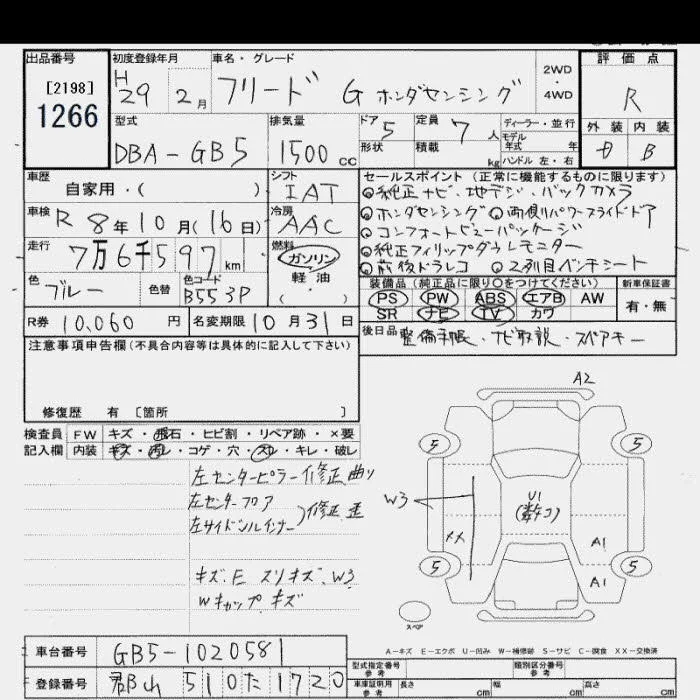 出品番号
[2198]
1266
初度登録年月
H 29 2月
車名・グレード
フリード G ホンダセンシング
2WD
・
4WD
評価点
R
外装 内装
B
型式
DBA-GB5
排気量
1500 cc
ドア 5
形状
定員 7人
積載 kg
ディーラー・並行
モデル
年式 年
ハンドル 左・右
車歴
自家用・( )
シフト
IAT
冷房
AAC
車検 R 8年10月(16日)
走行 7万6千597 km
燃料
ガソリン
軽油
( )
色
ブルー
色替
色コード
B553P
セールスポイント (正常に機能するものに限ります)
◎純正ナビ、地デジ、バックカメラ
◎ホンダセンシング ◎両側パワースライドドア
◎コンフォートビューパッケージ
◎純正フィリップダウンモニター
◎前後ドラレコ ◎2列目ベンチシート
装備品 (純正品に限り○をつけてください)
PS PW ABS エアB AW
SR ナビ TV カワ
新車保証書
有・無
R券 10,060 円
名変期限 10月31日
後日品 整備手帳、ナビ取説、スペアキー
注意事項申告欄 (不具合内容等は具体的に記入して下さい)
修復歴 有 [箇所 ]
検査員 FW キズ・飛石・ヒビ割・リペア跡・×要
記入欄 内装 キズ・汚レ・コゲ・穴・スレ・キレ・破レ
左センターピラー修正曲り
左センターフロア
左サイドシルインナー
)修正歪
キズ、E スリキズ、W3
Wキャップ、キズ
A2
5 5
W3
U1
(数ヶコ)
XX
A1
A1
5 5
スペア
A-キズ E-エクボ U-凹み W-補修跡 S-サビ C-腐食 XX-交換済
車台番号 GB5-1020581
登録番号 郡山 510 た 1720
型式指定番号
参考
類別区分番号
参考
車庫証明用
参考
長さ cm 幅 cm 高さ cm